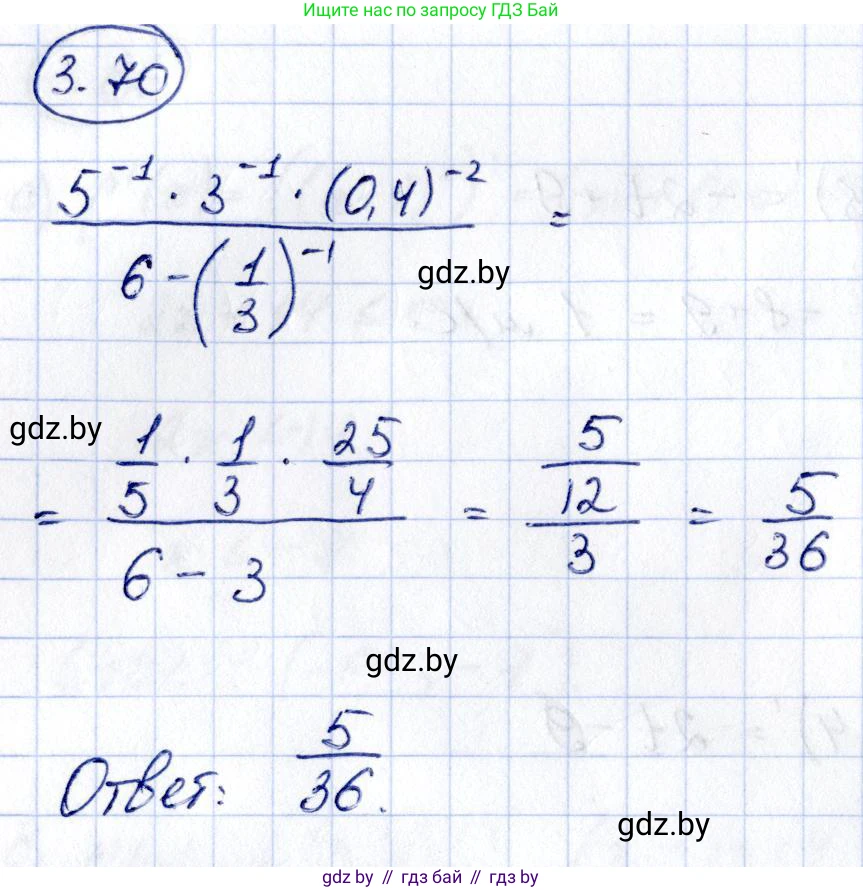 Ищите нас по запросу ГДЗ Бай
3.70
\frac{5^{-1} \cdot 3^{-1} \cdot (0,4)^{-2}}{6 - \left(\frac{1}{3}\right)^{-1}} =
gdz.by
gdz.by
= \frac{\frac{1}{5} \cdot \frac{1}{3} \cdot \frac{25}{4}}{6 - 3} = \frac{\frac{5}{12}}{3} = \frac{5}{36}
gdz.by
Ответ: \frac{5}{36}.
gdz.by
gdz.by // гдз бай // gdz by